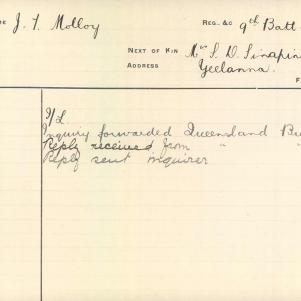 ME J. T. Molloy REG. &C 9th Batt
NEXT OF KIN Mrs S. D.
ADDRESS Yeelanna.
F
Inquiry forwarded Queensland
Reply received from " "
Reply sent inquirer